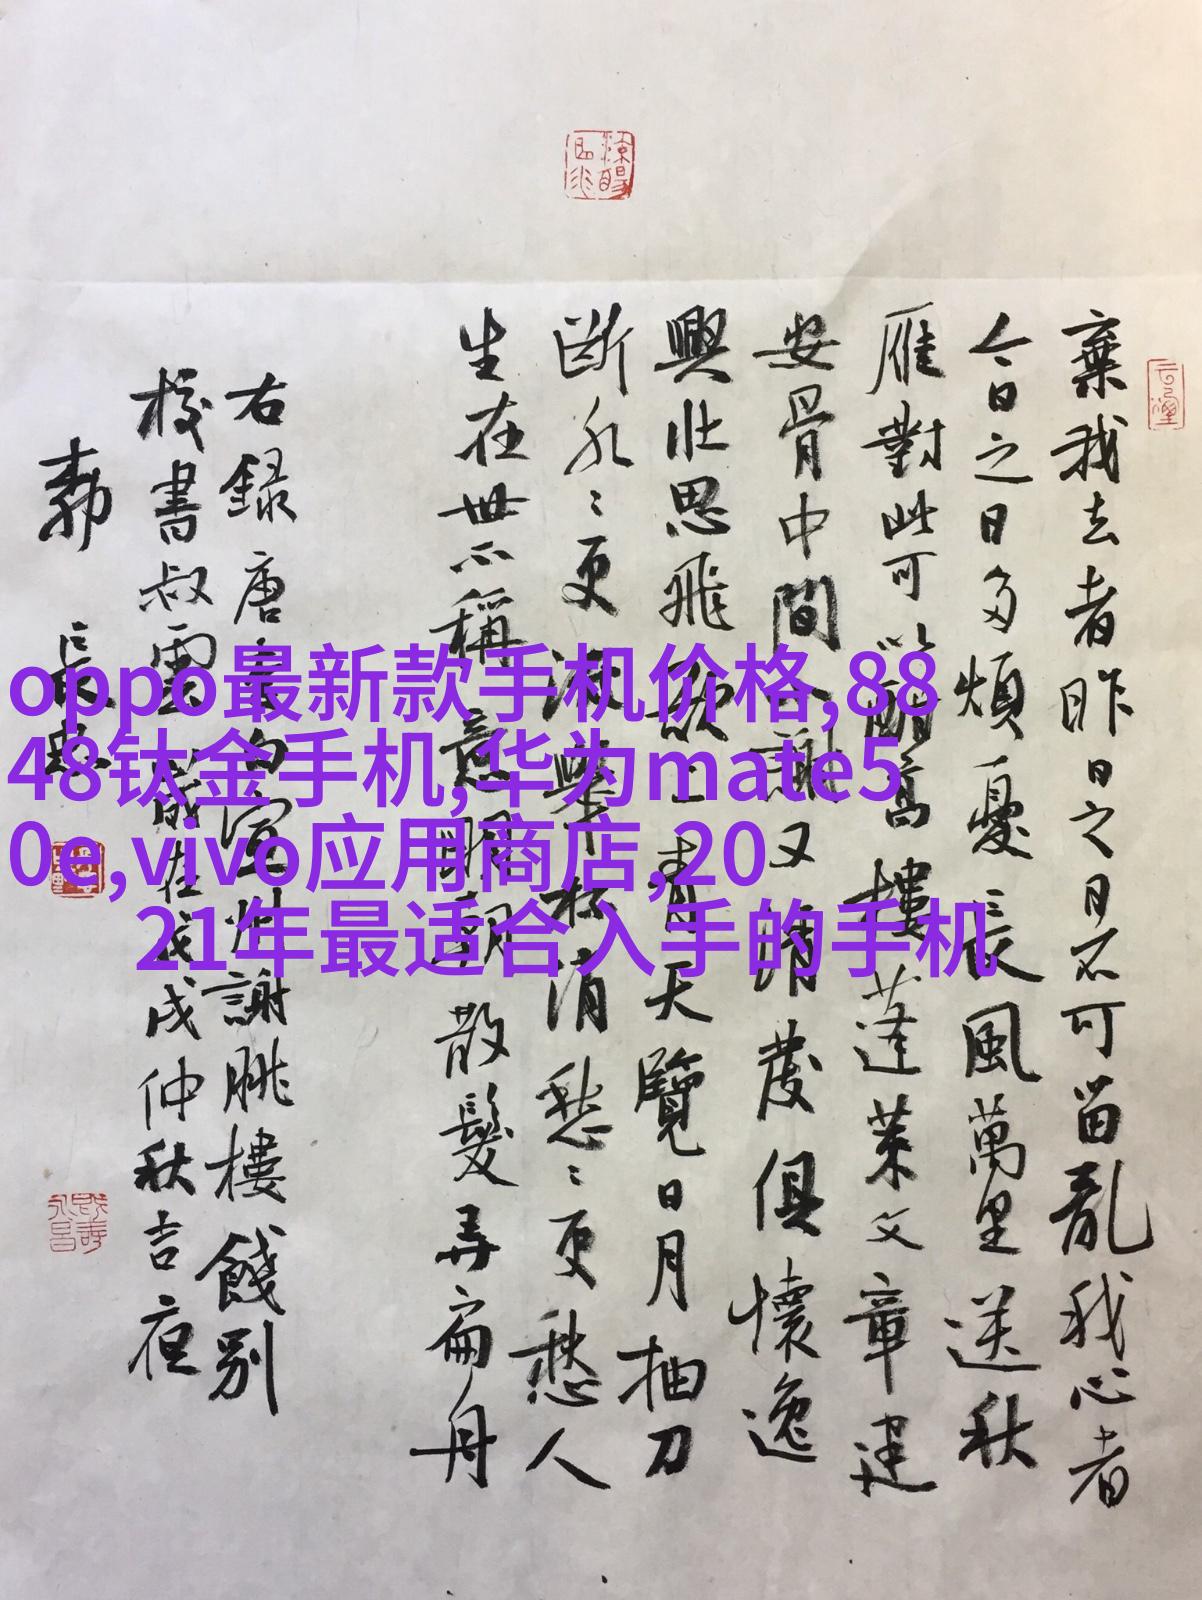 棄我去者昨日之日不可留亂我心者
今日之日多煩憂長風萬里送秋
雁對此可以酣高樓蓬萊文章建
安骨中間小謝又清發俱懷逸
興壯思飛欲上青天覽日月抽刀
斷水〻更流舉杯消愁〻更愁人
生在世不稱意明朝散髮弄扁舟
右録唐李白宣州謝朓樓餞別
校書叔雲歲在戊戌仲秋吉夜
郭長
oppo最新款手机价格,88
48钛金手机,华为mate5
0e,vivo应用商店,20
21年最适合入手的手机